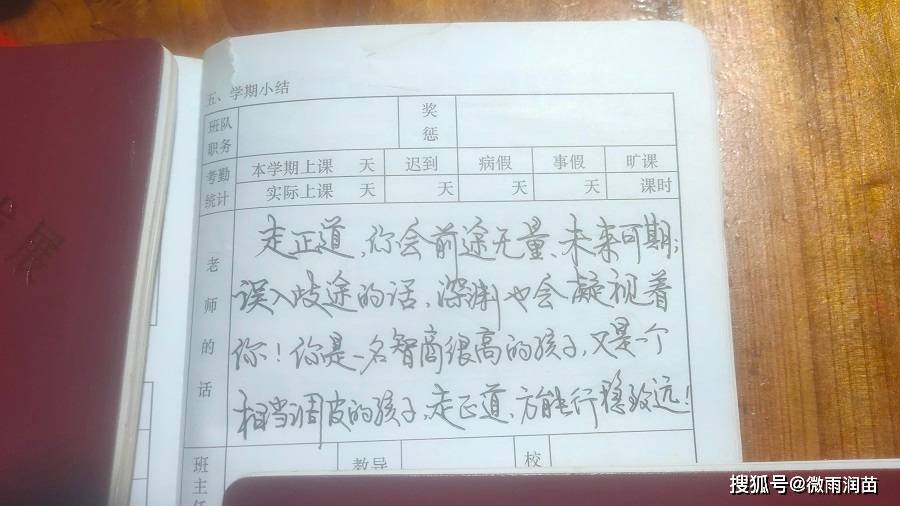 五、学期小结
班队职务 奖惩
考勤统计 本学期上课 天 迟到 病假 事假 旷课
实际上课 天 天 天 天 课时
老师的话
走正道,你会前途无量、未来可期;
误入歧途的话,深渊也会凝视着
你!你是一名智商很高的孩子,又是一个
相当调皮的孩子,走正道、方能行稳致远!
班主任 教导 校
展
搜狐号@微雨润苗